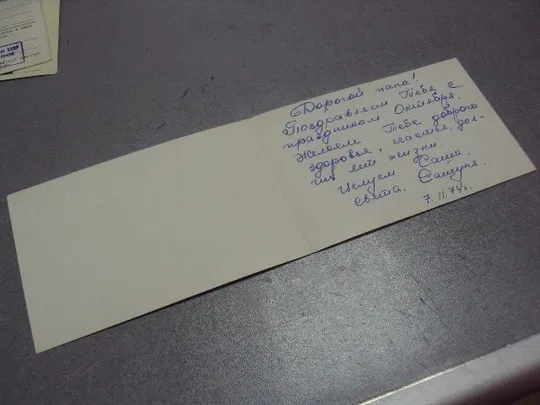 Дорогой папа!
Поздравляем Тебя с
праздником Октября.
Желаем Тебе доброго
здоровья, счастья, дол-
гих лет жизни.
Целуем Саша,
Света, Сашуня.
7.11.74г.
СССР